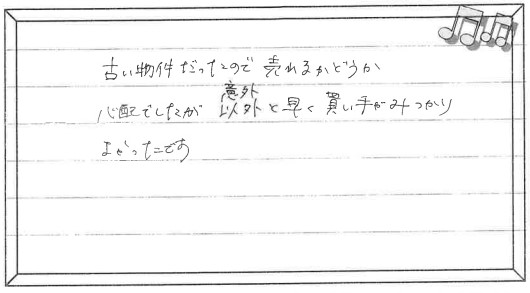 古い物件だったので 売れるかどうか
意外
心配でしたが 以外と早く 買い手がみつかり
よかったです